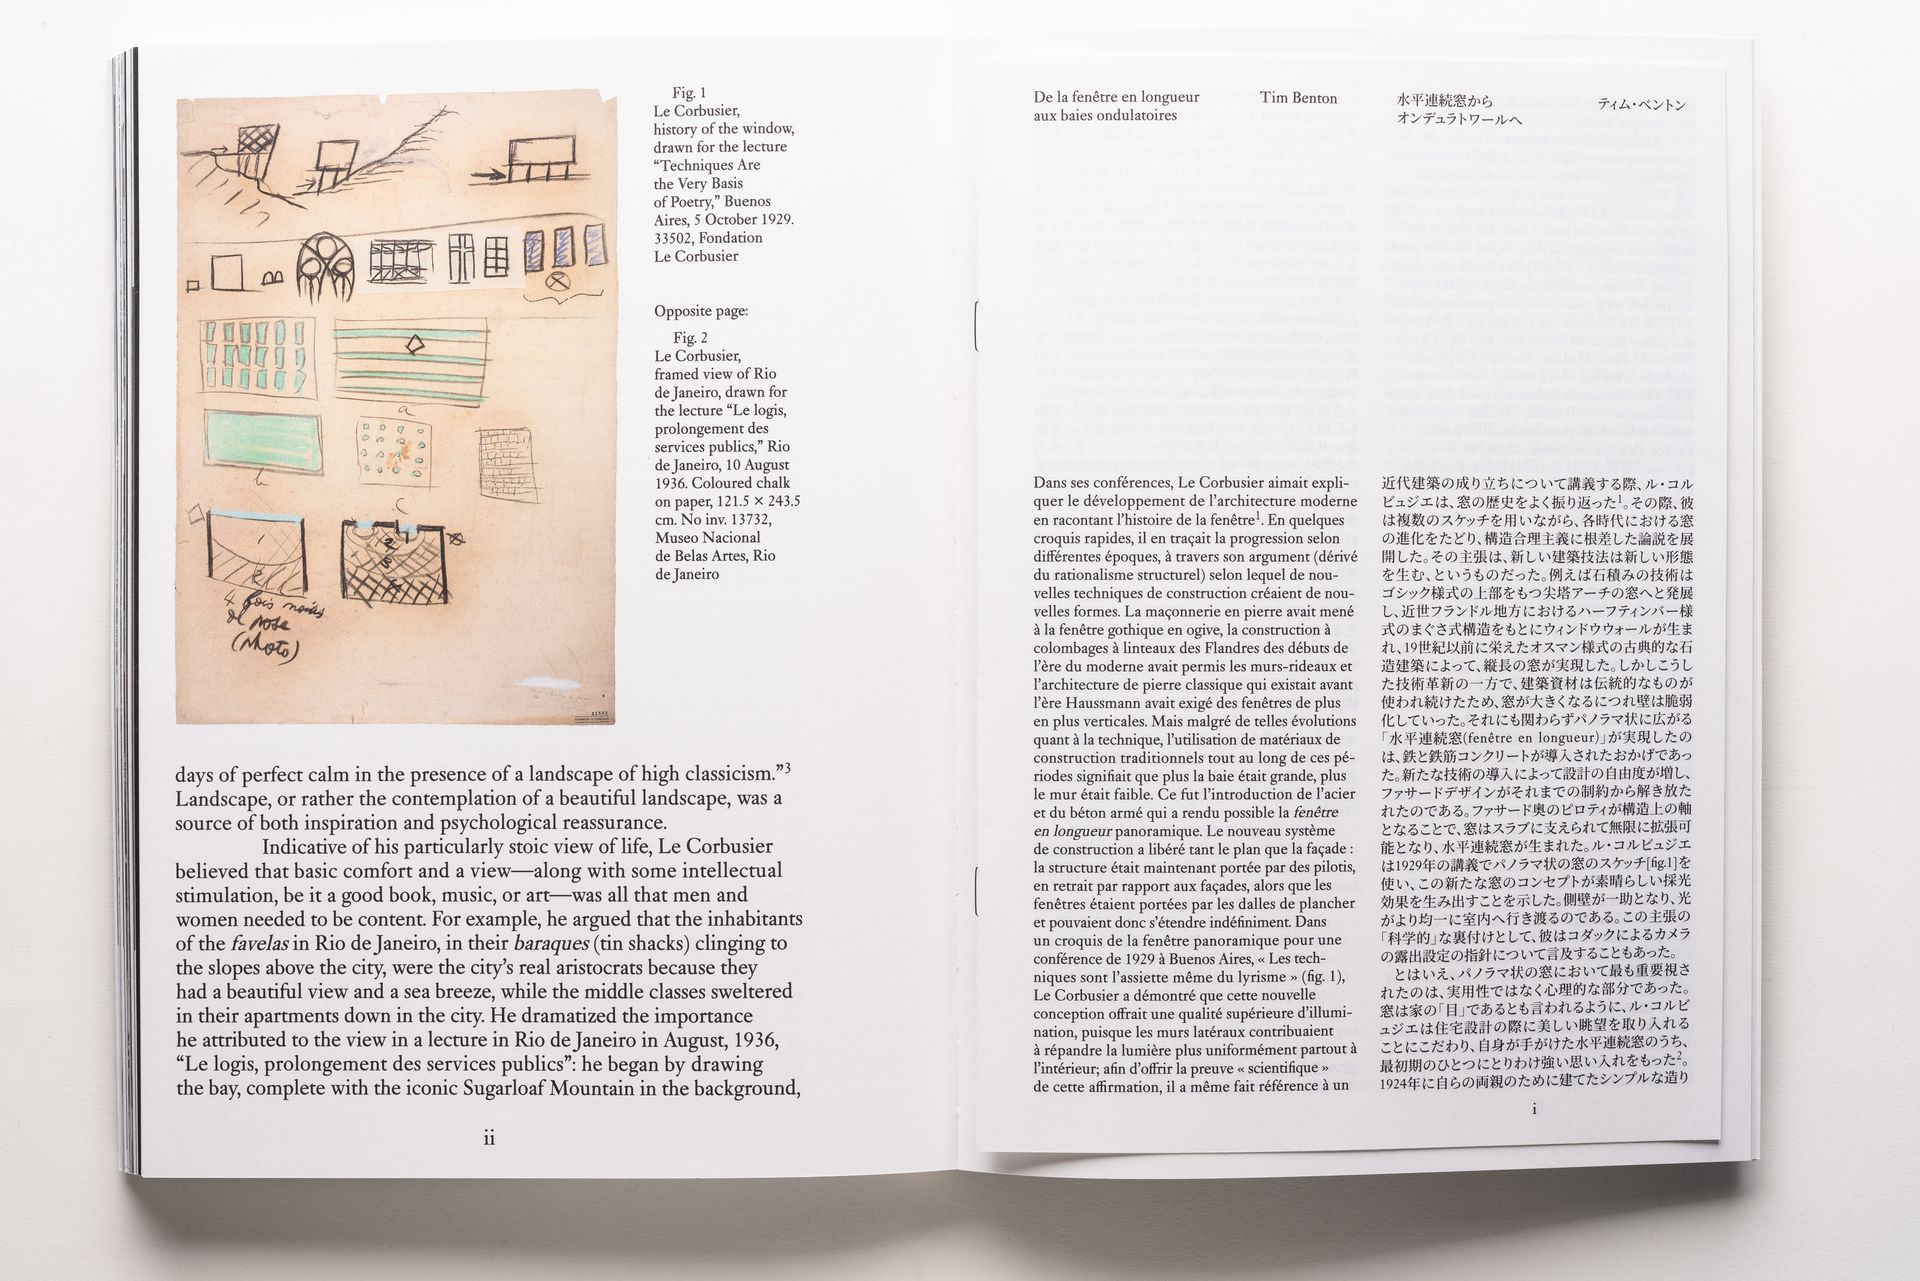 Fig. 1
Le Corbusier,
history of the window,
drawn for the lecture
“Techniques Are
the Very Basis
of Poetry,” Buenos
Aires, 5 October 1929.
33502, Fondation
Le Corbusier
Opposite page:
Fig. 2
Le Corbusier,
framed view of Rio
de Janeiro, drawn for
the lecture “Le logis,
prolongement des
services publics,” Rio
de Janeiro, 10 August
1936. Coloured chalk
on paper, 121.5 × 243.5
cm. No inv. 13732,
Museo Nacional
de Belas Artes, Rio
de Janeiro
a
b
c
1
2
2
3
4
4 fois moins
de pose
(photo)
33502
days of perfect calm in the presence of a landscape of high classicism.”3
Landscape, or rather the contemplation of a beautiful landscape, was a
source of both inspiration and psychological reassurance.
Indicative of his particularly stoic view of life, Le Corbusier
believed that basic comfort and a view—along with some intellectual
stimulation, be it a good book, music, or art—was all that men and
women needed to be content. For example, he argued that the inhabitants
of the favelas in Rio de Janeiro, in their baraques (tin shacks) clinging to
the slopes above the city, were the city’s real aristocrats because they
had a beautiful view and a sea breeze, while the middle classes sweltered
in their apartments down in the city. He dramatized the importance
he attributed to the view in a lecture in Rio de Janeiro in August, 1936,
“Le logis, prolongement des services publics”: he began by drawing
the bay, complete with the iconic Sugarloaf Mountain in the background,
ii
De la fenêtre en longueur
aux baies ondulatoires
Tim Benton
水平連続窓から
オンデュラトワールへ
ティム・ベントン
Dans ses conférences, Le Corbusier aimait expli-
quer le développement de l’architecture moderne
en racontant l’histoire de la fenêtre1. En quelques
croquis rapides, il en traçait la progression selon
différentes époques, à travers son argument (dérivé
du rationalisme structurel) selon lequel de nou-
velles techniques de construction créaient de nou-
velles formes. La maçonnerie en pierre avait mené
à la fenêtre gothique en ogive, la construction à
colombages à linteaux des Flandres des débuts de
l’ère du moderne avait permis les murs-rideaux et
l’architecture de pierre classique qui existait avant
l’ère Haussmann avait exigé des fenêtres de plus
en plus verticales. Mais malgré de telles évolutions
quant à la technique, l’utilisation de matériaux de
construction traditionnels tout au long de ces pé-
riodes signifiait que plus la baie était grande, plus
le mur était faible. Ce fut l’introduction de l’acier
et du béton armé qui a rendu possible la fenêtre
en longueur panoramique. Le nouveau système
de construction a libéré tant le plan que la façade :
la structure était maintenant portée par des pilotis,
en retrait par rapport aux façades, alors que les
fenêtres étaient portées par les dalles de plancher
et pouvaient donc s’étendre indéfiniment. Dans
un croquis de la fenêtre panoramique pour une
conférence de 1929 à Buenos Aires, « Les tech-
niques sont l’assiette même du lyrisme » (fig. 1),
Le Corbusier a démontré que cette nouvelle
conception offrait une qualité supérieure d’illumi-
nation, puisque les murs latéraux contribuaient
à répandre la lumière plus uniformément partout à
l’intérieur; afin d’offrir la preuve « scientifique »
de cette affirmation, il a même fait référence à un
近代建築の成り立ちについて講義する際、ル・コル
ビュジエは、窓の歴史をよく振り返った1。その際、彼
は複数のスケッチを用いながら、各時代における窓
の進化をたどり、構造合理主義に根差した論説を展
開した。その主張は、新しい建築技法は新しい形態
を生む、というものだった。例えば石積みの技術は
ゴシック様式の上部をもつ尖塔アーチの窓へと発展
し、近世フランドル地方におけるハーフティンバー様
式のまぐさ式構造をもとにウィンドウウォールが生ま
れ、19世紀以前に栄えたオスマン様式の古典的な石
造建築によって、縦長の窓が実現した。しかしこうし
た技術革新の一方で、建築資材は伝統的なものが
使われ続けたため、窓が大きくなるにつれ壁は脆弱
化していった。それにも関わらずパノラマ状に広がる
「水平連続窓(fenêtre en longueur)」が実現したの
は、鉄と鉄筋コンクリートが導入されたおかげであっ
た。新たな技術の導入によって設計の自由度が増し、
ファサードデザインがそれまでの制約から解き放た
れたのである。ファサード奥のピロティが構造上の軸
となることで、窓はスラブに支えられて無限に拡張可
能となり、水平連続窓が生まれた。ル・コルビュジエ
は1929年の講義でパノラマ状の窓のスケッチ[fig.1]を
使い、この新たな窓のコンセプトが素晴らしい採光
効果を生み出すことを示した。側壁が一助となり、光
がより均一に室内へ行き渡るのである。この主張の
「科学的」な裏付けとして、彼はコダックによるカメラ
の露出設定の指針について言及することもあった。
とはいえ、パノラマ状の窓において最も重要視さ
れたのは、実用性ではなく心理的な部分であった。
窓は家の「目」であるとも言われるように、ル・コルビ
ュジエは住宅設計の際に美しい眺望を取り入れる
ことにこだわり、自身が手がけた水平連続窓のうち、
最初期のひとつにとりわけ強い思い入れをもった2。
1924年に自らの両親のために建てたシンプルな造り
i